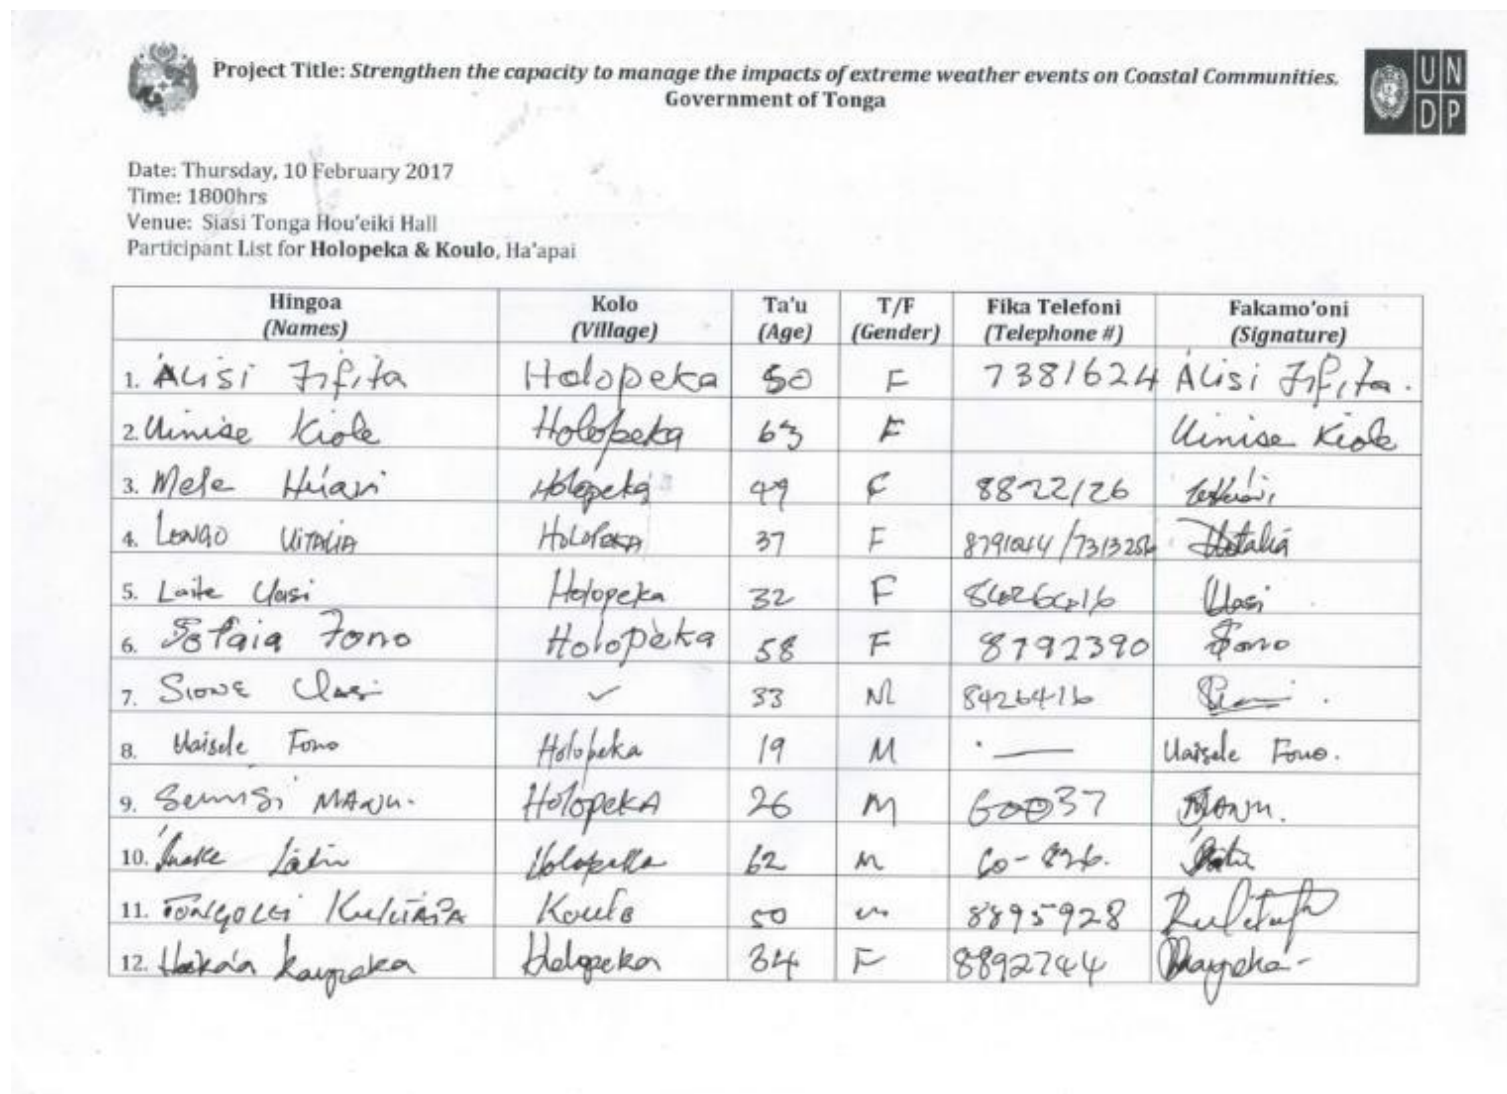 Project Title: Strengthen the capacity to manage the impacts of extreme weather events on Coastal Communities.
Government of Tonga
UN
DP
Date: Thursday, 10 February 2017
Time: 1800hrs
Venue: Siasi Tonga Hou'eiki Hall
Participant List for Holopeka & Koulo, Ha'apai
Hingoa Kolo Ta'u T/F Fika Telefoni Fakamo'oni
(Names) (Village) (Age) (Gender) (Telephone #) (Signature)
1. Alisi Fifita Holopeka 50 F 7381624 Alisi Fifita.
2. Uinise Kiole Holopeka 63 F Uinise Kiole
3. Mele Holopeka 49 F 8822126
4. Longo Uitalia Holopeka 37 F
5. Laite Uasi Holopeka 32 F Uasi
6. Fono Holopeka 58 F 8792390 Fono
7. Sione Uasi 33 M 8426416
8. Vaisele Fono Holopeka 19 M — Vaisele Fono.
9. Semisi MANU. HolopekA 26 M 60037 MANU.
10. Latu Holopeka 62 M 60-826.
11. Koulo 50 m 8895928
12. Holopeka 34 F 8892744